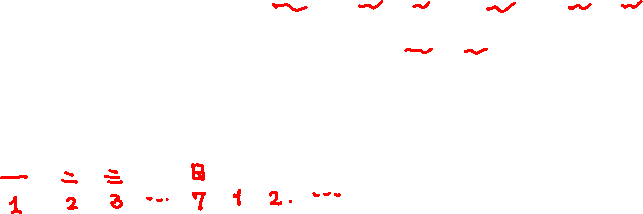 一 二 三 日
1 2 3 ... 7 1 2. ...